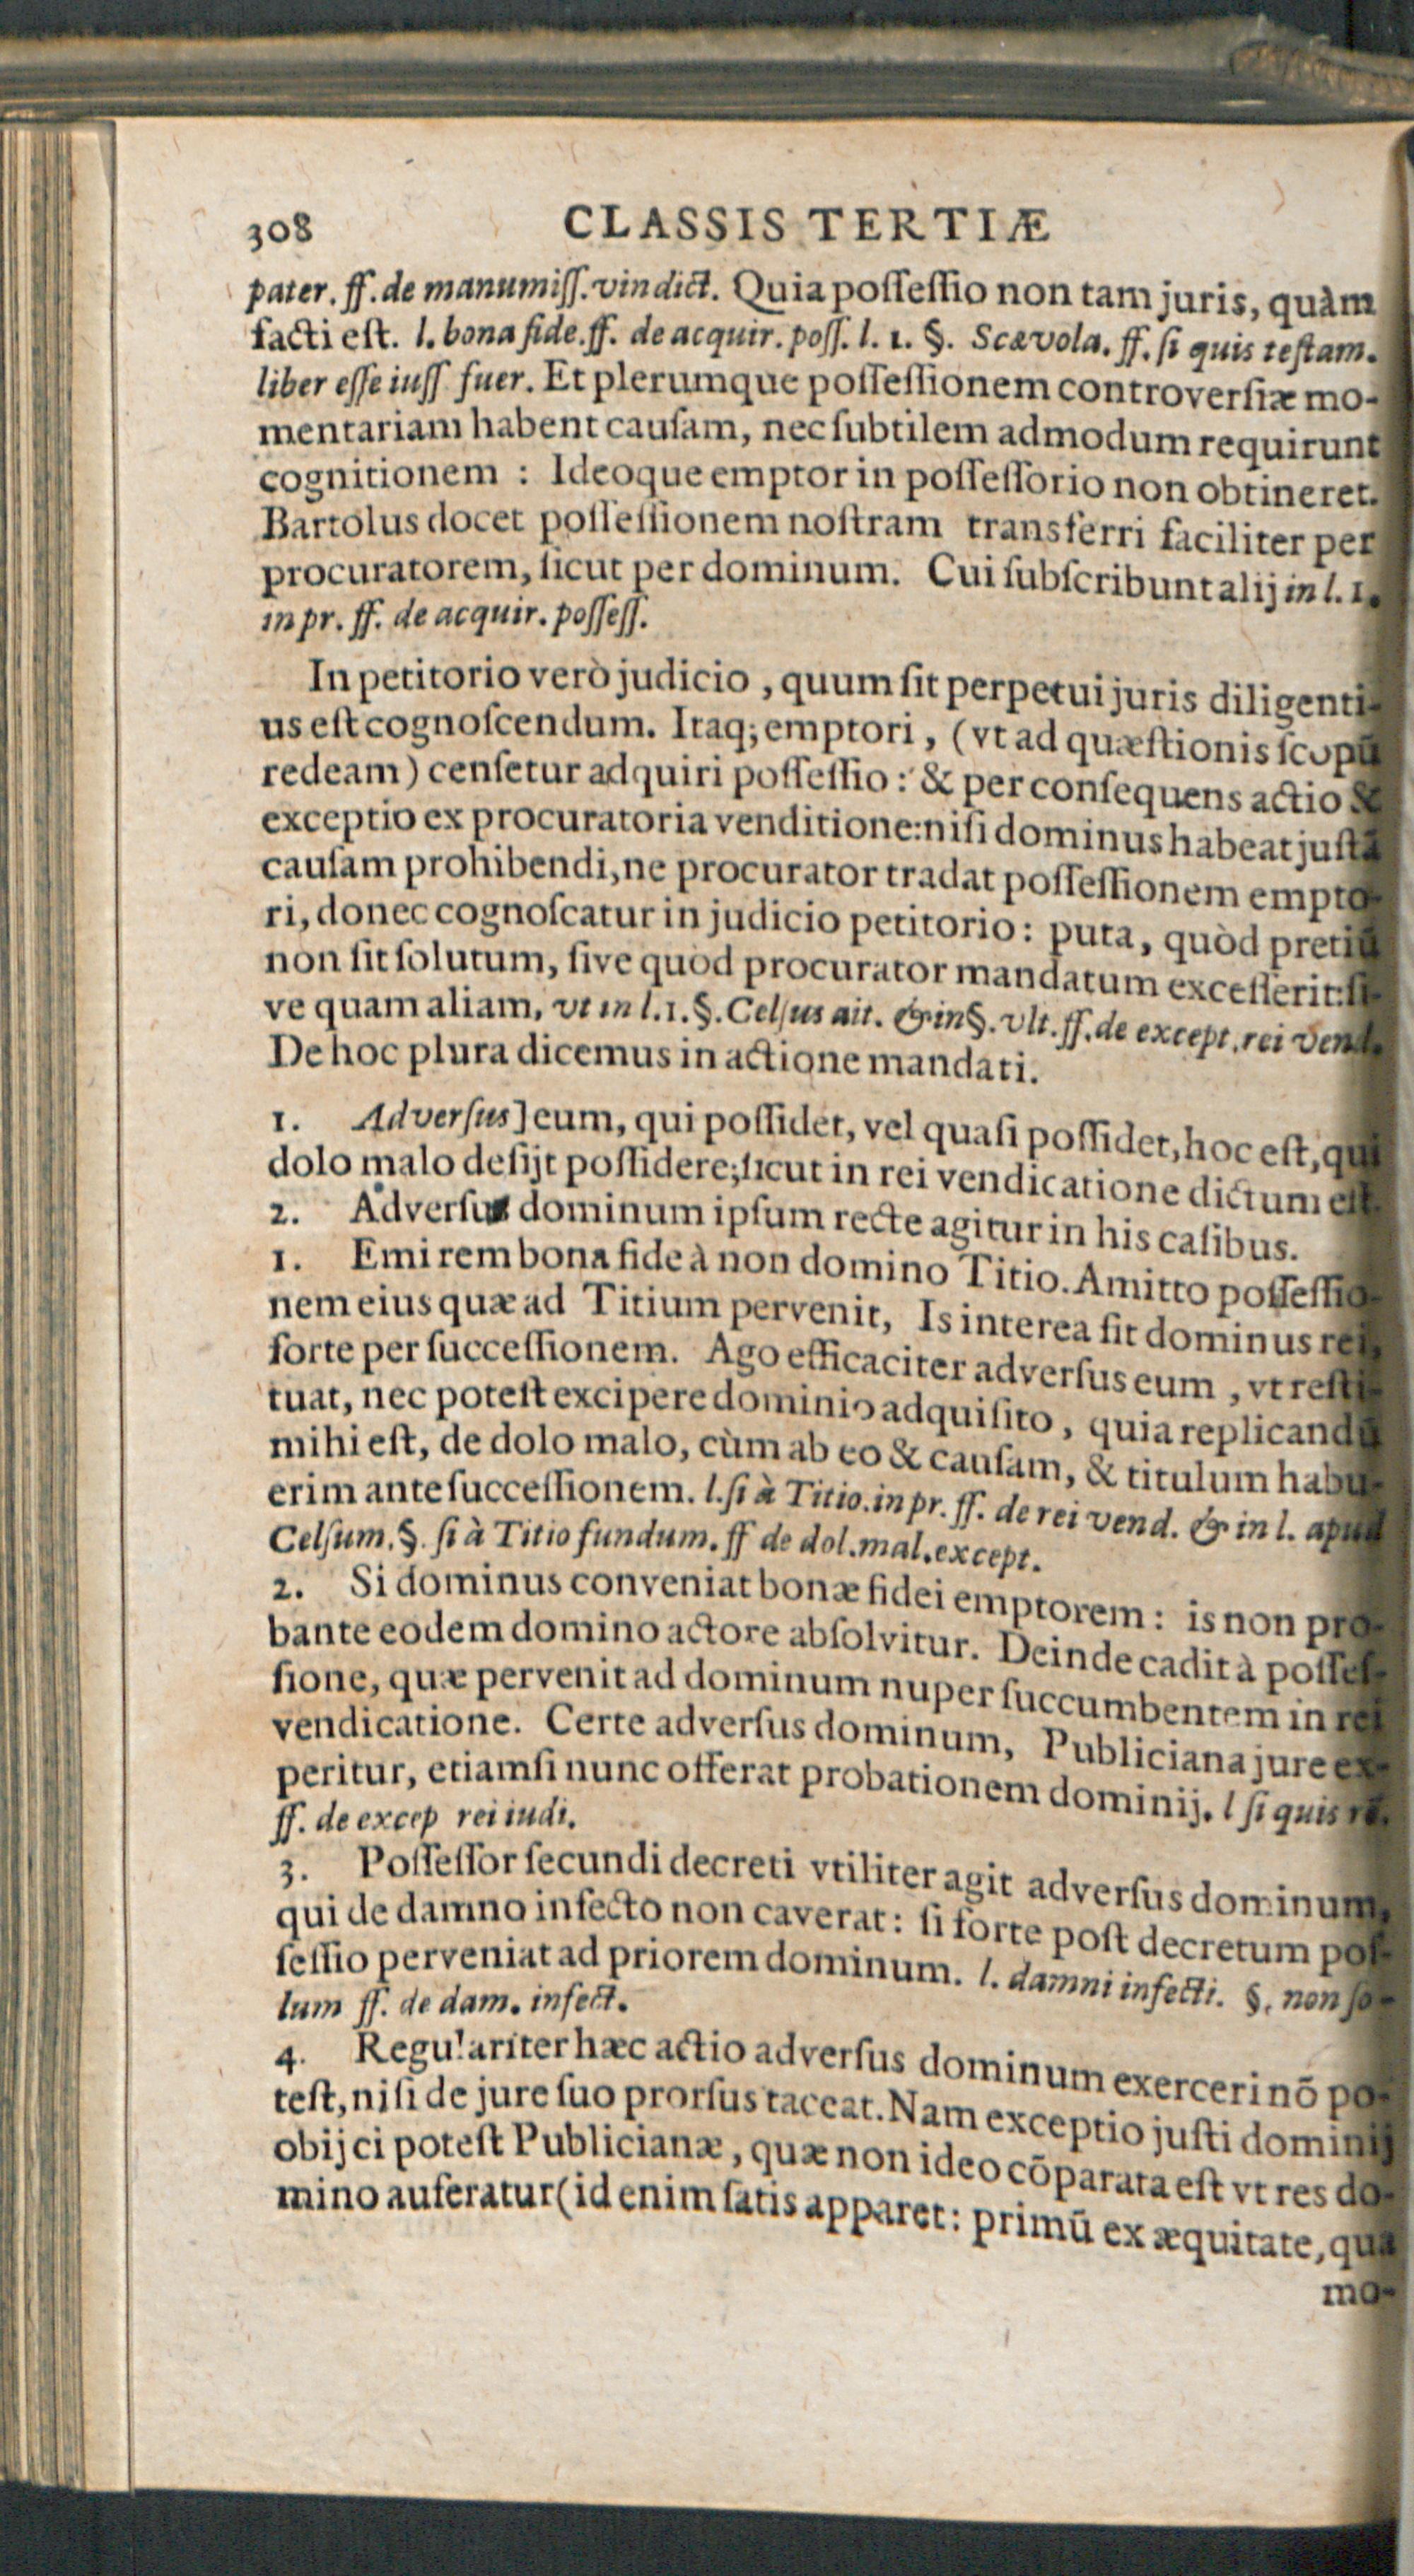 308 CLASSIS TERTIÆ
pater. ff. de manumiſſ. vindict. Quia poſſeſſio non tam juris, quàm
facti eſt. l. bona fide. ff. de acquir. poſſ. l. 1. §. Scævola. ff. ſi quis teſtam.
liber eſſe iuſſ fuer. Et plerumque poſſeſſionem controverſiæ mo-
mentariam habent cauſam, nec ſubtilem admodum requirunt
cognitionem : Ideoque emptor in poſſeſſorio non obtineret.
Bartolus docet poſſeſſionem noſtram transferri faciliter per
procuratorem, ſicut per dominum. Cui ſubſcribunt alij in l. 1.
in pr. ff. de acquir. poſſeſſ.
In petitorio verò judicio, quum ſit perpetui juris diligenti-
us eſt cognoſcendum. Itaq; emptori, (vt ad quæſtionis ſcopū
redeam) cenſetur adquiri poſſeſſio: & per conſequens actio &
exceptio ex procuratoria venditione: niſi dominus habeat juſtā
cauſam prohibendi, ne procurator tradat poſſeſſionem empto-
ri, donec cognoſcatur in judicio petitorio: puta, quòd pretiū
non ſit ſolutum, ſive quòd procurator mandatum exceſſerit: ſi-
ve quam aliam, vt in l. 1. §. Celſus ait. & in §. vlt. ff. de except. rei vend.
De hoc plura dicemus in actione mandati.
1. Adverſus] eum, qui poſſidet, vel quaſi poſſidet, hoc eſt, qui
dolo malo deſijt poſſidere; ſicut in rei vendicatione dictum eſt.
2. Adverſus dominum ipſum recte agitur in his caſibus.
1. Emi rem bona fide à non domino Titio. Amitto poſſeſſio-
nem eius quæ ad Titium pervenit, Is interea fit dominus rei,
forte per ſucceſſionem. Ago efficaciter adverſus eum, vt reſti-
tuat, nec poteſt excipere dominio adquiſito, quia replicandū
mihi eſt, de dolo malo, cùm ab eo & cauſam, & titulum habu-
erim ante ſucceſſionem. l. ſi à Titio. in pr. ff. de rei vend. & in l. apud
Celſum. §. ſi à Titio fundum. ff de dol. mal. except.
2. Si dominus conveniat bonæ fidei emptorem: is non pro-
bante eodem domino actore abſolvitur. Deinde cadit à poſſeſ-
ſione, quæ pervenit ad dominum nuper ſuccumbentem in rei
vendicatione. Certe adverſus dominum, Publiciana jure ex-
peritur, etiamſi nunc offerat probationem dominij. l ſi quis rē.
ff. de excep rei iudi.
3. Poſſeſſor ſecundi decreti vtiliter agit adverſus dominum,
qui de damno infecto non caverat: ſi forte poſt decretum poſ-
ſeſſio perveniat ad priorem dominum. l. damni infecti. §. non ſo-
lum ff. de dam. infect.
4. Regulariter hæc actio adverſus dominum exerceri nō po-
teſt, niſi de jure ſuo prorſus taceat. Nam exceptio juſti dominij
obijci poteſt Publicianæ, quæ non ideo cōparata eſt vt res do-
mino auferatur (id enim ſatis apparet: primū ex æquitate, qua
mo-